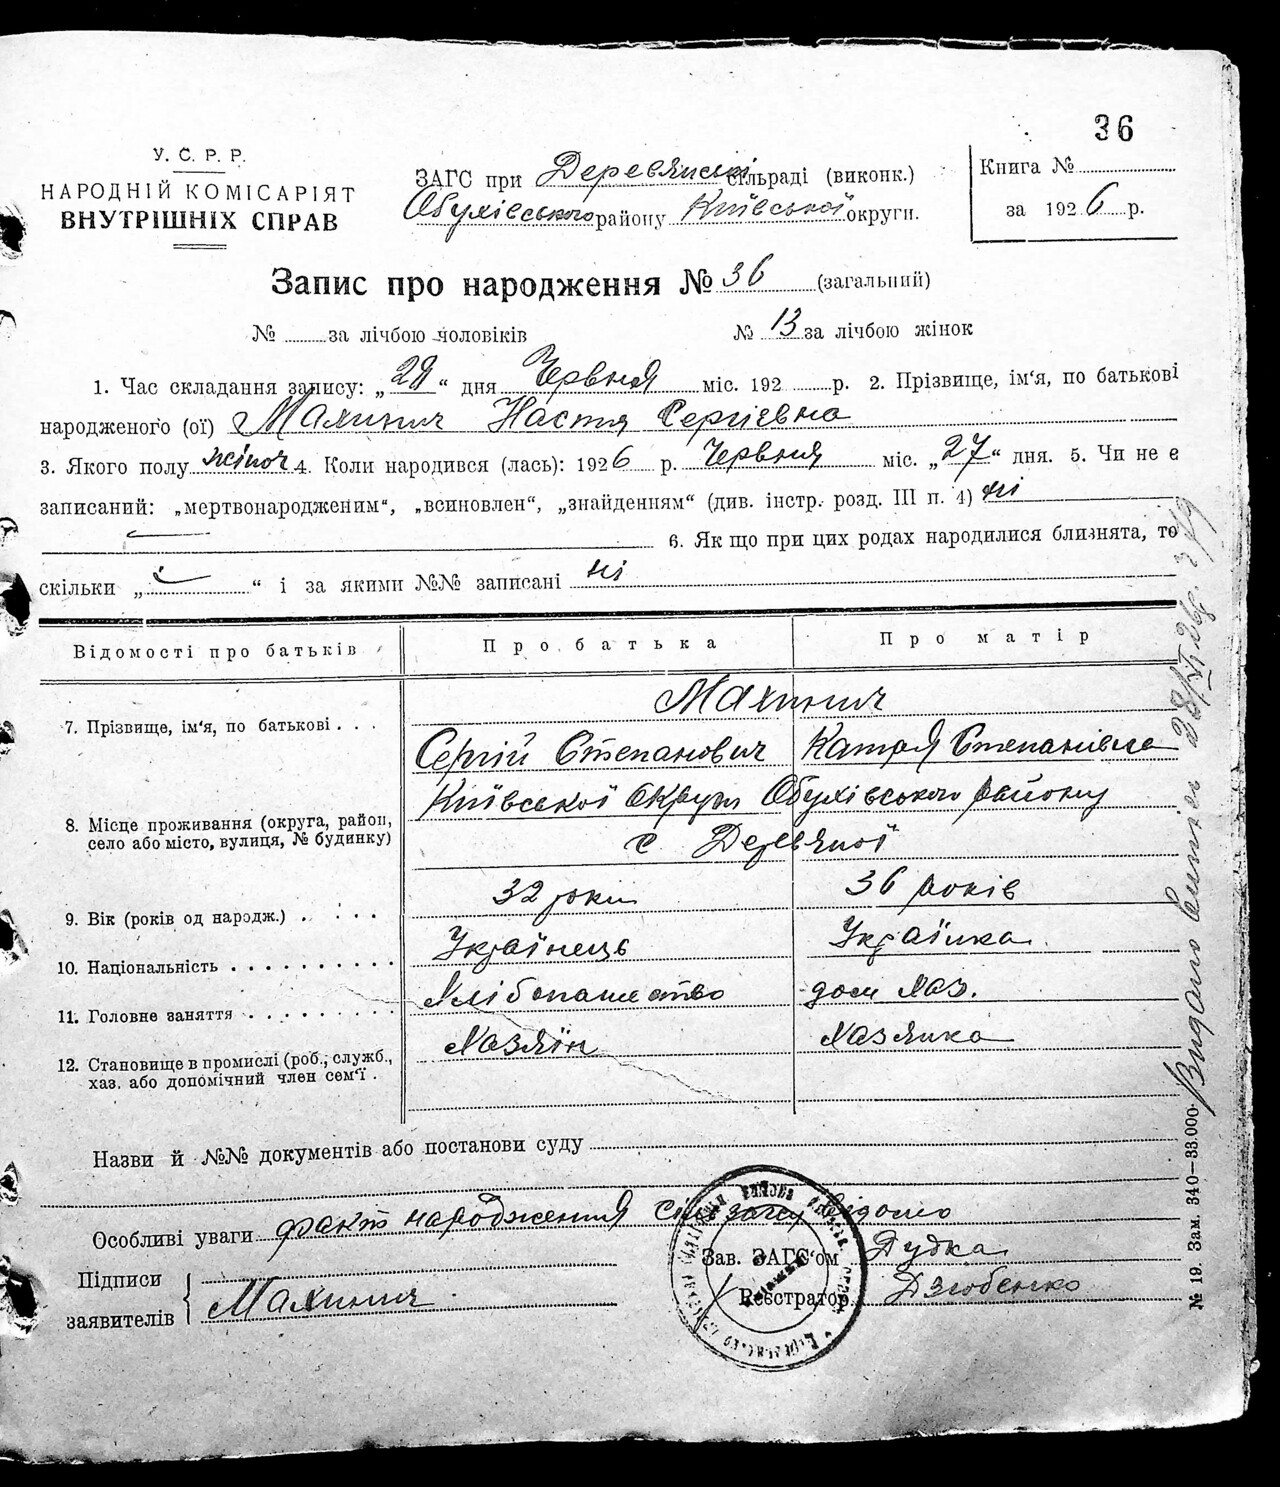 36
У. С. Р. Р.
НАРОДНІЙ КОМІСАРІЯТ
ВНУТРІШНІХ СПРАВ
ЗАГС при Деревянській сільраді (виконк.)
Обухівського району Київської округи.
Книга №
за 1926 р.
Запис про народження № 36 (загальний)
№ за лічбою чоловіків № 13 за лічбою жінок
1. Час складання запису: „28“ дня Червня міс. 192 р. 2. Прізвище, ім'я, по батькові
народженого (ої) Махинич Настя Сергієвна
3. Якого полу жіноч 4. Коли народився (лась): 1926 р. Червня міс. „27“ дня. 5. Чи не є
записаний: „мертвонародженим“, „всиновлен“, „знайденням“ (див. інстр. розд. III п. 4) ні
6. Як що при цих родах народилися близнята, то
скільки „ “ і за якими №№ записані ні
Відомості про батьків Про батька Про матір
Махинич
7. Прізвище, ім'я, по батькові . . . Сергій Степанович Катря Степанівна
Київської округи Обухівського району
8. Місце проживання (округа, район,
село або місто, вулиця, № будинку) с. Деревяної
9. Вік (років од народж.) . . . . 32 роки 36 років
10. Національність . . . . . . . . . . Українець Українка
11. Головне заняття . . . . . . . . . Хлібопашество дом хаз.
12. Становище в промислі (роб., служб., Хазяїн Хазяйка
хаз. або допомічний член сем'ї .
Назви й №№ документів або постанови суду
Особливі уваги факт народження відомо
Підписи
заявителів Махинич
Зав. ЗАГС'ом Дудка
Реєстратор Дзюбенко
№ 19. Зам. 340—33.000
Видано 28/VI 26